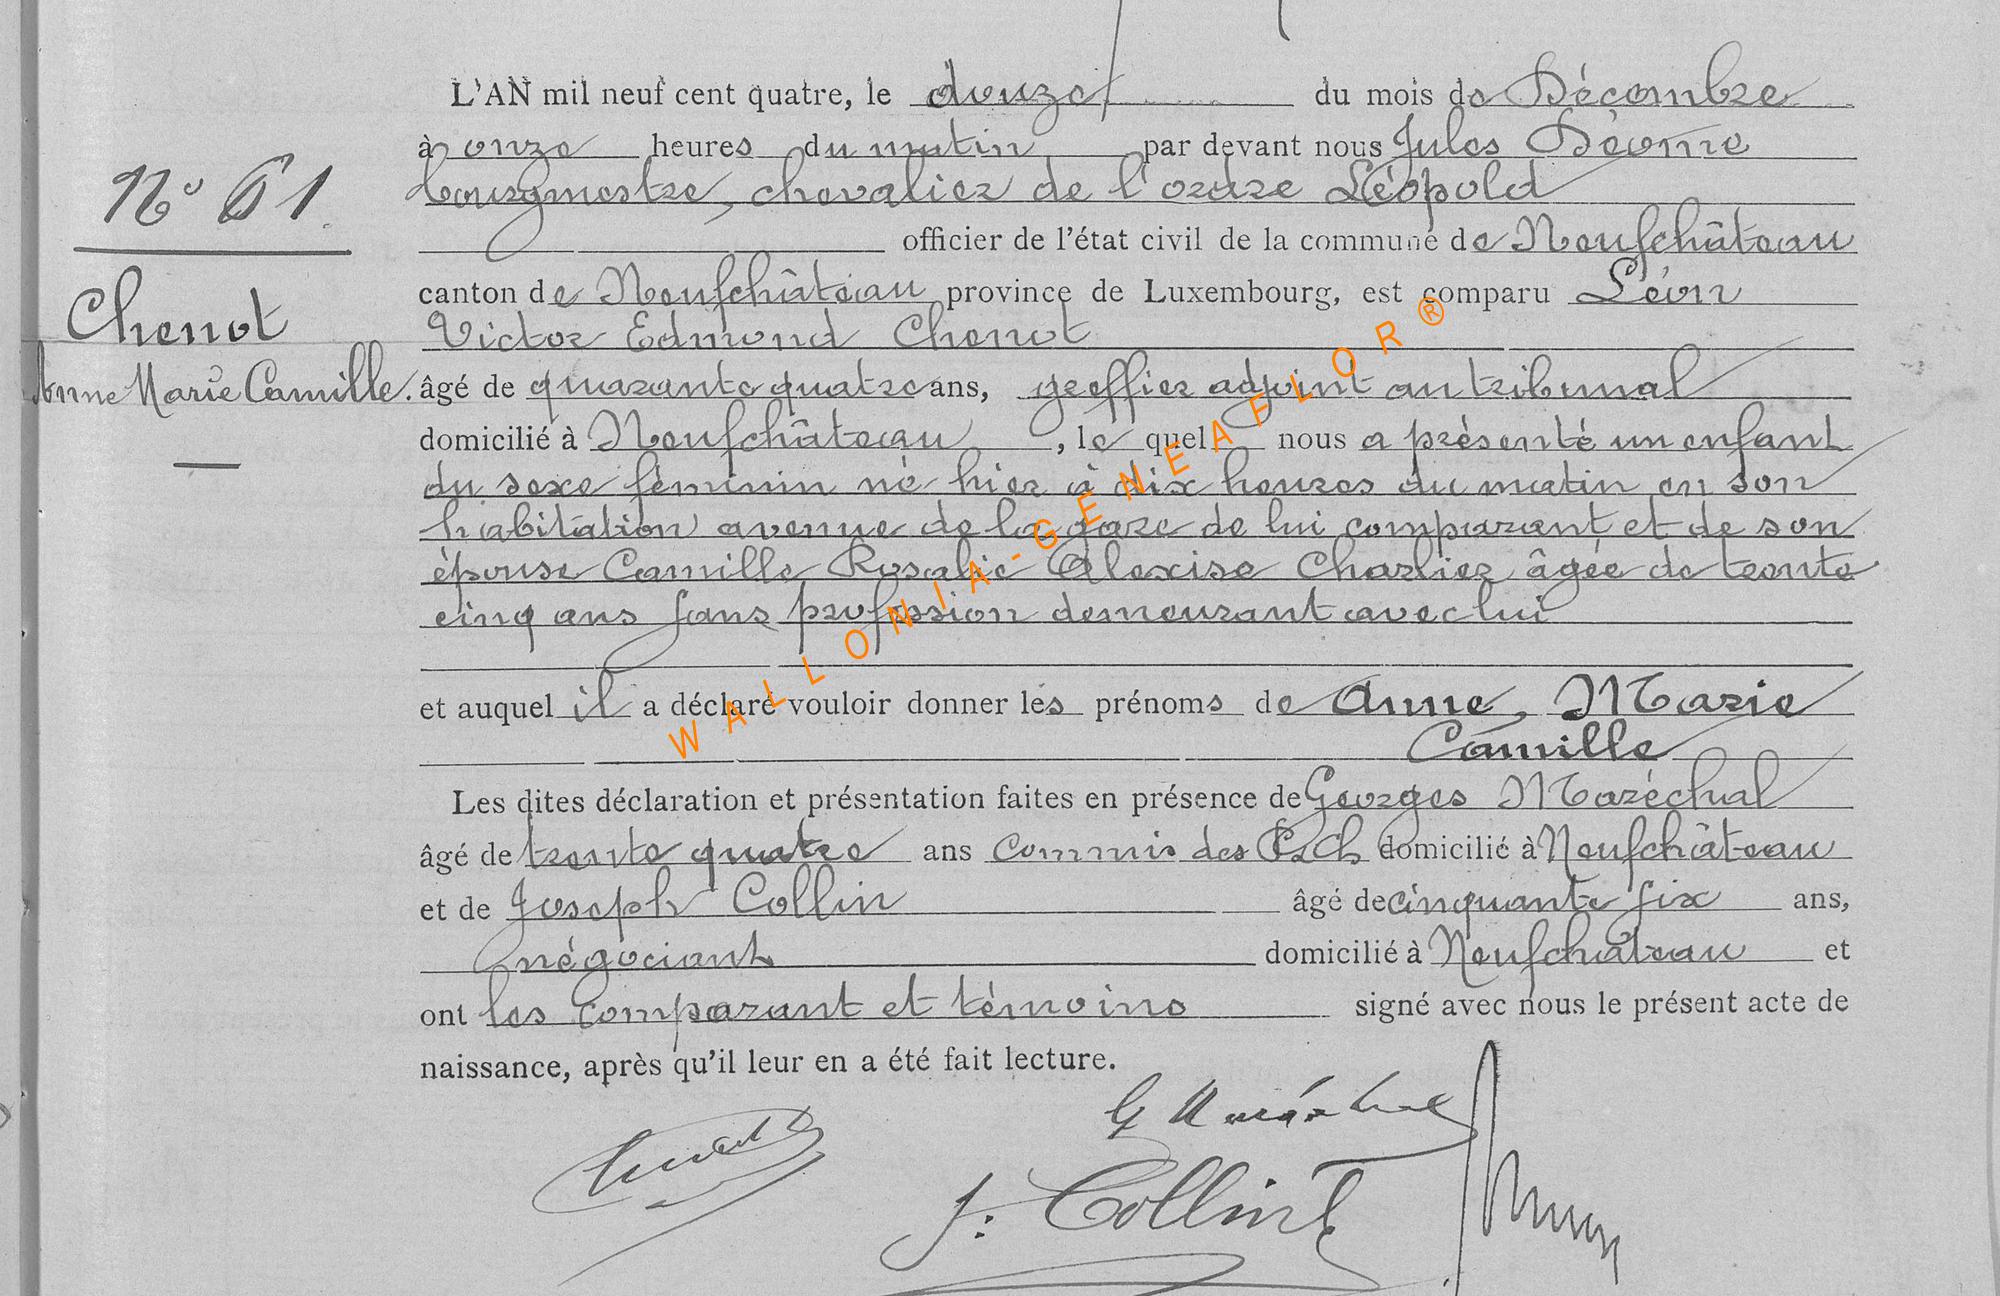 L'AN mil neuf cent quatre, le douze du mois de Décembre
à onze heures du matin par devant nous Jules Déome
bourgmestre, chevalier de l'ordre Léopold
N° 61.
officier de l'état civil de la commune de Neufchâteau
canton de Neufchâteau province de Luxembourg, est comparu Léon
Chenot
Victor Edmond Chenot
Anne Marie Camille.
âgé de quarante quatre ans, greffier adjoint au tribunal
domicilié à Neufchâteau, le quel nous a présenté un enfant
du sexe féminin né hier à dix heures du matin en son
habitation avenue de la gare de lui comparant et de son
épouse Camille Rosalie Alexise Charlier âgée de trente
cinq ans sans profession demeurant avec lui
et auquel il a déclaré vouloir donner les prénoms de Anne, Marie
Camille
Les dites déclaration et présentation faites en présence de Georges Maréchal
âgé de trente quatre ans commis des domicilié à Neufchâteau
et de Joseph Collin âgé de cinquante six ans,
négociant domicilié à Neufchâteau et
ont les comparant et témoins signé avec nous le présent acte de
naissance, après qu'il leur en a été fait lecture.
G Maréchal
Chenot
J. Collin
WALLONIA-GENEAFLOR®